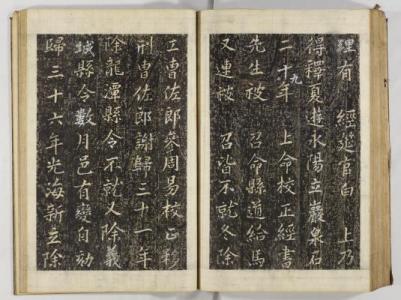 理有 經筵官白 上乃
得釋夏遊永陽立巖泉石
二十九年 上命校正經書
先生被 召命縣道給馬
又連被 召皆不就冬除
工曹佐郎參周易校正移
刑曹佐郎謝歸三十一年
除龍潭縣令不就又除義
城縣令數月邑有變自劾
歸三十六年光海新立除